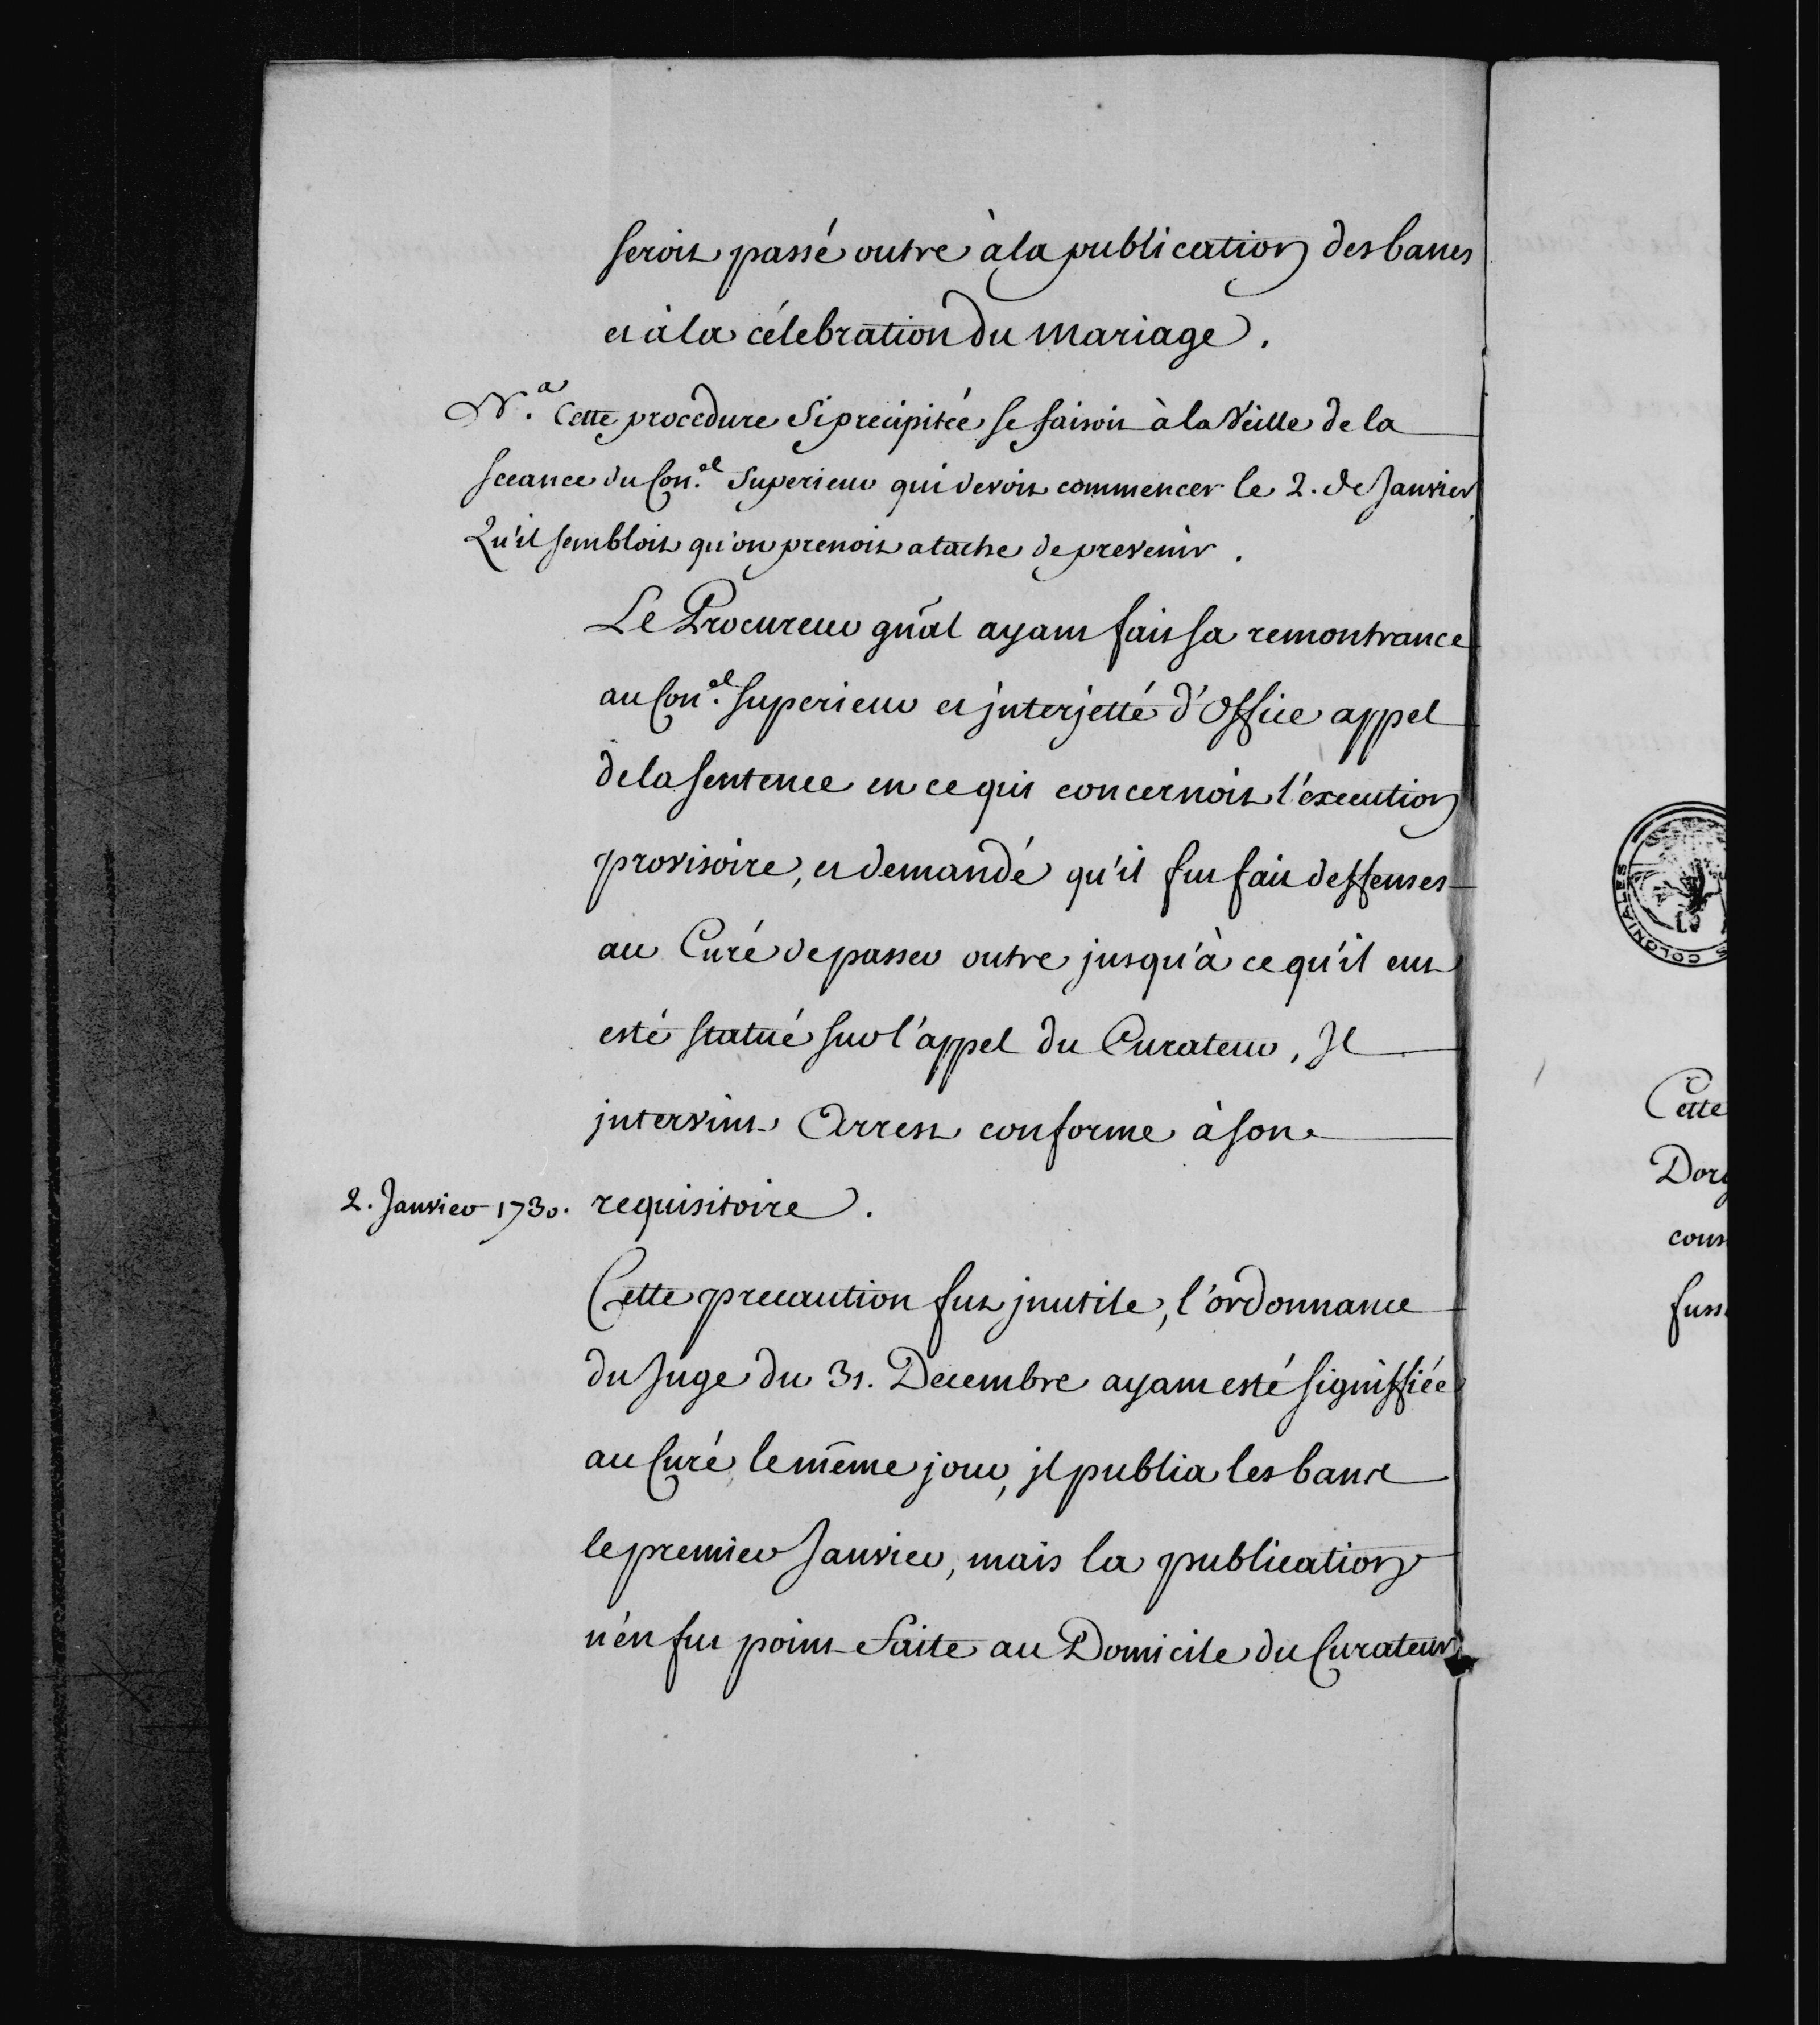 seroit passé outre à la publication des bancs
et à la célebration du mariage.
N.a Cette procedure si precipitée se faisoit à la Veille de la
sceance du Con.el Superieur qui devoit commencer le 2. de Janvier
Qu'il sembloit qu'on prenoit atache de prevenir.
Le Procureur gñal ayant fait sa remontrance
au Con.el superieur et jnterjetté d'Office appel
de la sentence en ce qui concernoit l'execution
provisoire, et demandé qu'il fut fait deffenses
au Curé de passer outre jusqu'à ce qu'il eut
esté statué sur l'appel du Curateur, Il
jntervint Arrest conforme à son
2. Janvier 1730. requisitoire.
Cette precaution fut jnutile, l'ordonnance
du Juge du 31. Decembre ayant esté signiffiée
au Curé le même jour, jl publia les bancs
le premier Janvier, mais la publication
n'en fut point faite au Domicile du Curateur
COLONIALES
Cette